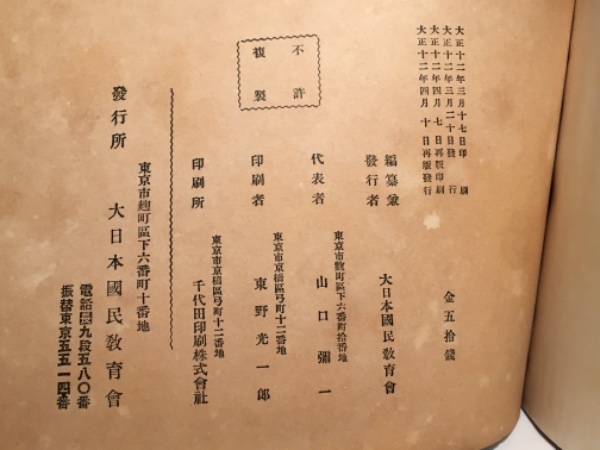 大正十二年三月十七日印刷
大正十二年三月二十日發行
大正十二年四月七日再版印刷
大正十二年四月十日再版發行
金五拾錢
不許
複製
編纂兼
發行者
大日本國民敎育會
東京市麴町區下六番町拾番地
代表者 山口彌一
東京市京橋區弓町十二番地
印刷者 東野光一郎
東京市京橋區弓町十二番地
印刷所 千代田印刷株式會社
東京市麴町區下六番町十番地
發行所 大日本國民敎育會
電話九段五八〇番
振替東京五五一四番